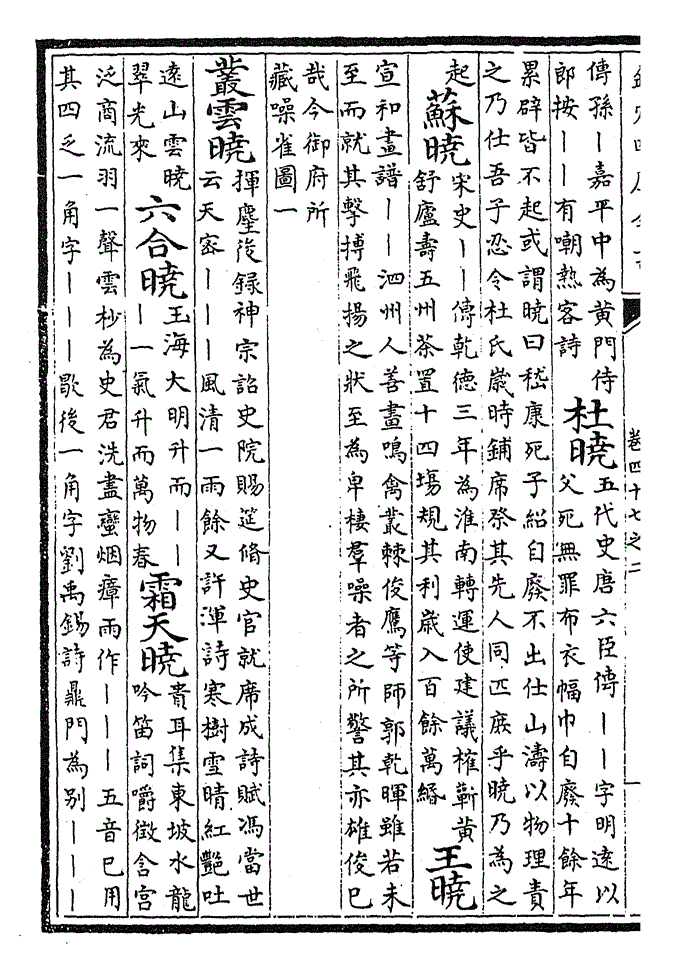 卷四十七之二
傳孫｜嘉平中為黄門侍
郎按｜｜有嘲熱客詩
杜曉
五代史唐六臣傳｜｜字明遠以
父死無罪布衣幅巾自廢十餘年
累辟皆不起或謂曉曰嵇康死子紹自廢不出仕山濤以物理責
之乃仕吾子忍令杜氏歲時鋪席祭其先人同匹庶乎曉乃為之
起
蘇曉
宋史｜｜傳乾德三年為淮南轉運使建議榷蘄黄
舒廬壽五州茶置十四場規其利歲入百餘萬緡
王曉
宣和畫譜｜｜泗州人善畫鳴禽叢棘俊鷹等師郭乾暉雖若未
至而就其擊搏飛揚之狀至為卑棲羣噪者之所警其亦雄俊已
哉今御府所
藏噪雀圖一
叢雲曉
揮麈後録神宗詔史院賜筵脩史官就席成詩賦馮當世
云天密｜｜｜風清一雨餘又許渾詩寒樹雪晴紅艷吐
遠山雲曉
翠光來
六合曉
玉海大明升而｜｜
｜一氣升而萬物春
霜天曉
貴耳集東坡水龍
吟笛詞嚼徵含宫
泛商流羽一聲雲杪為史君洗盡蠻烟瘴雨作｜｜｜五音已用
其四乏一角字｜｜｜歇後一角字劉禹錫詩鼎門為别｜｜｜